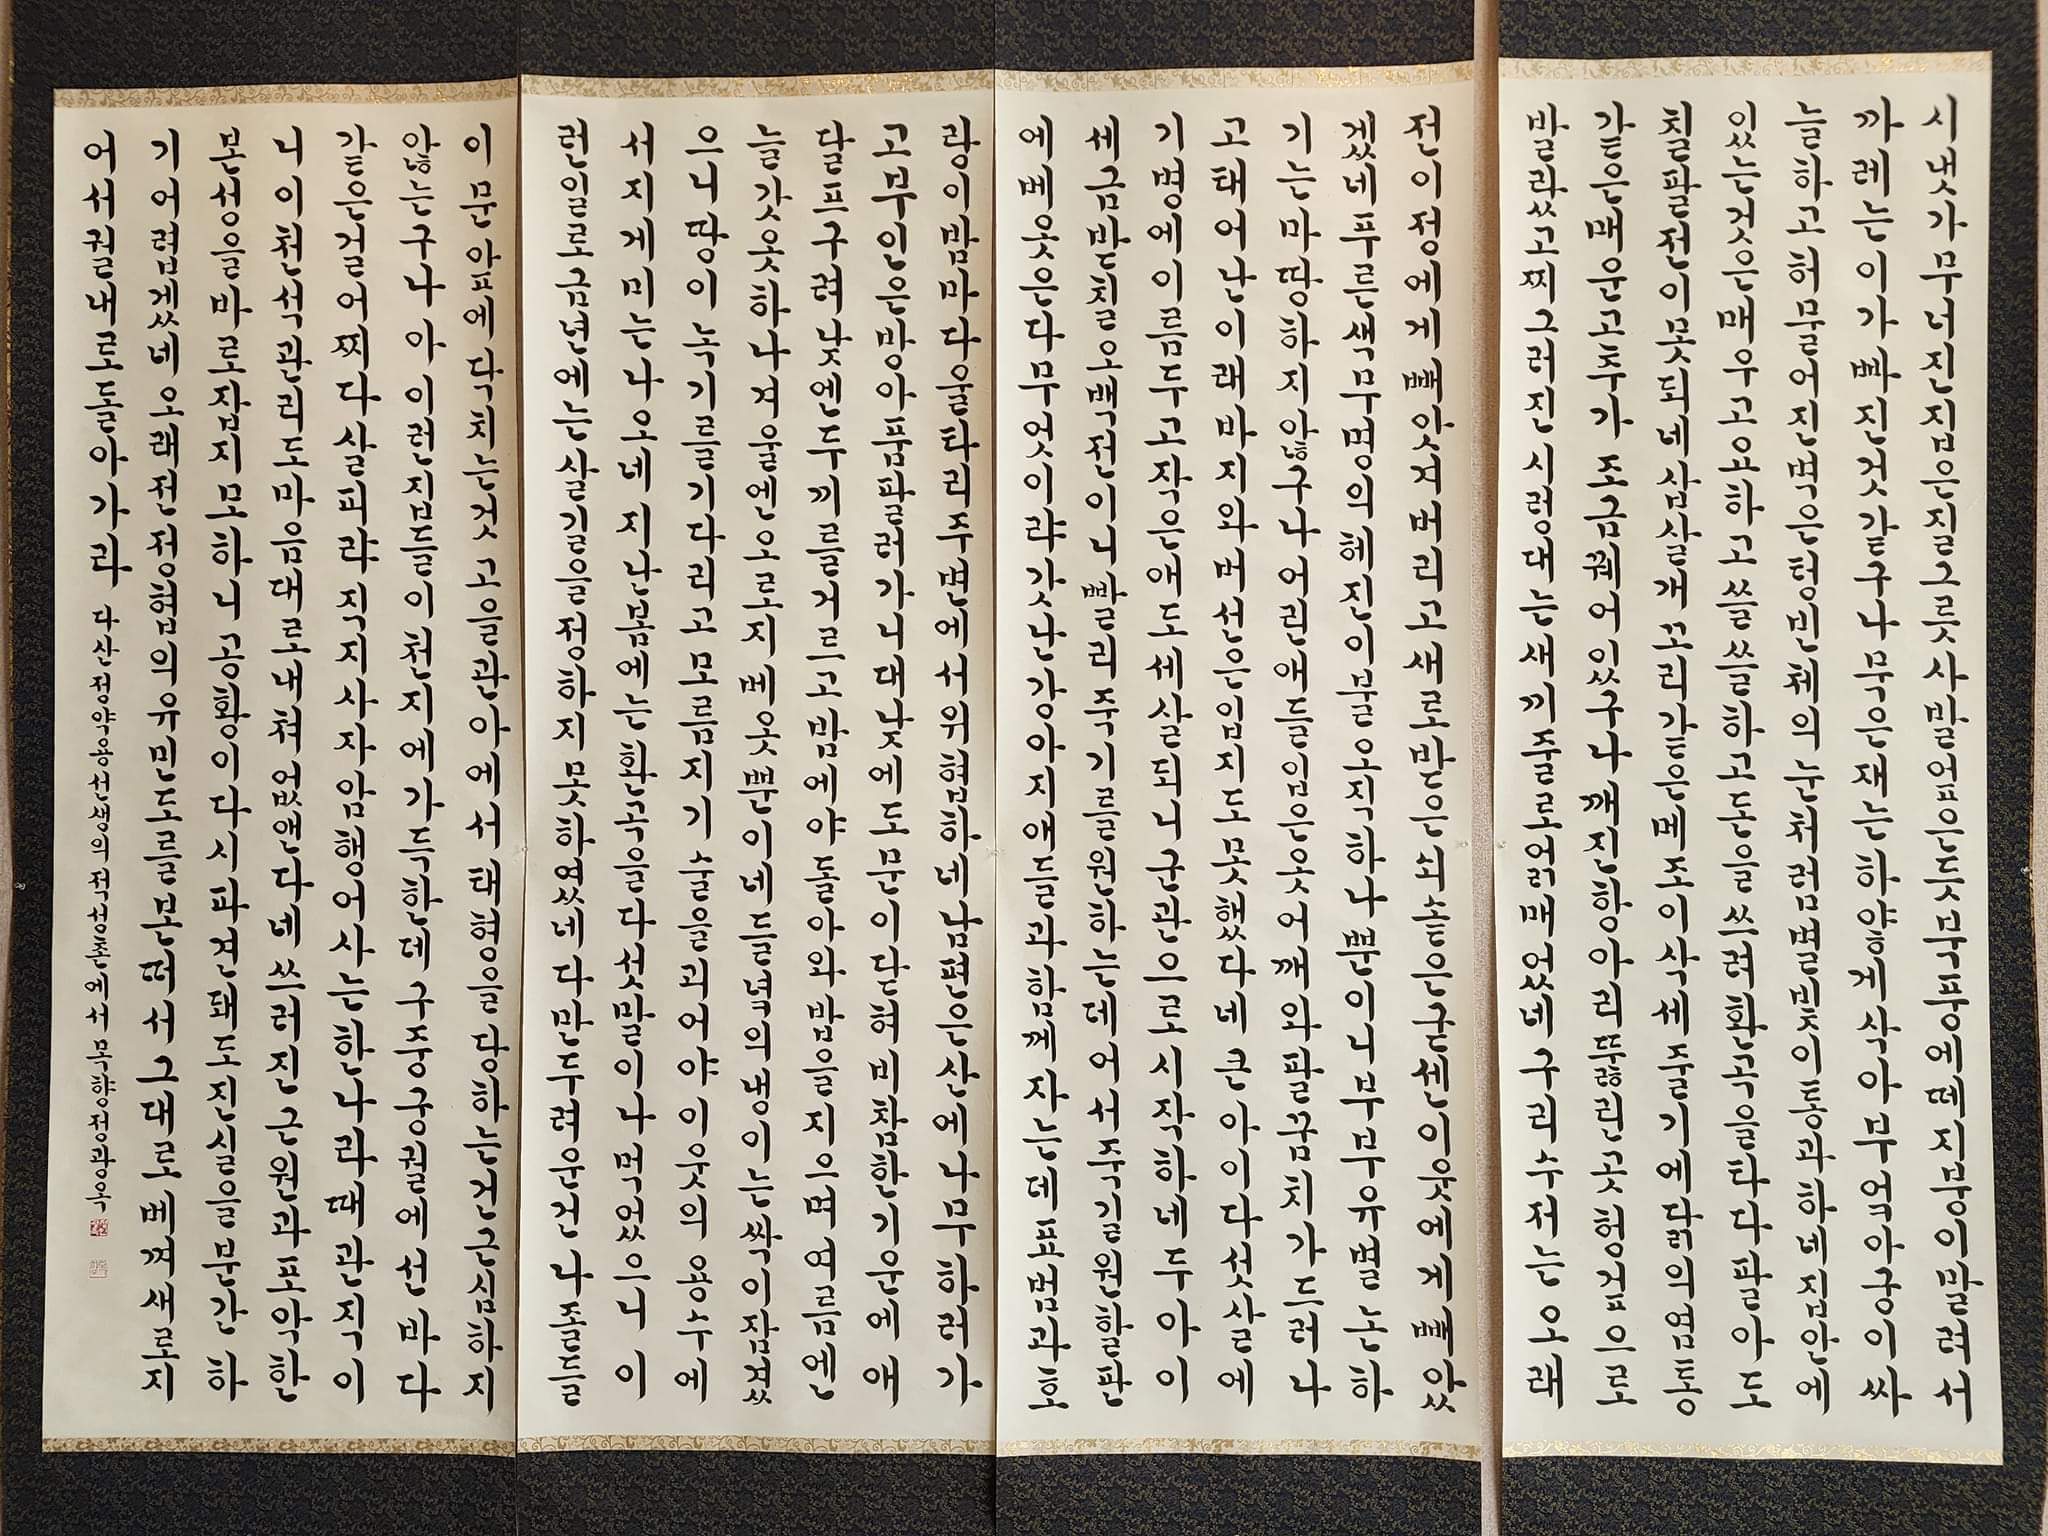 시냇가무너진집은질그릇사발엎은듯북풍에떼지붕이말려서
까레는이가빠진것같구나묵은재는하얗게삭아부엌아궁이싸
늘하고허물어진벽은텅빈체의눈처럼별빛이통과하네집안에
있는것은매우고요하고쓸쓸하고돈을쓰려환곡을타다팔아도
칠팔전이못되네삽살개꼬리같은메조이삭세줄기에닭의염통
같은매운고추가조금꿰어있구나깨진항아리뚫린곳헝겊으로
발랐고찌그러진시렁대는새끼줄로얽매었네구리수저는오래
전이정에게빼앗겨버리고새로맡은쇠솥은굳센이웃에게빼앗
겠네푸른색무명의헤진이불오직하나뿐이니부부유별논하
기는마땅하지않구나어린애들입은옷어깨와팔굽치가드러나
고태어난이래바지와버선은입지도못했다네큰아이다섯살에
기병에이름두고작은애도세살되니군관으로시작하네두아이
세금만칠오백전이니빨리죽기를원하는데어서죽길원할판
에베옷은다무엇이랴갓난강아지애들과함께자는데표범과호
랑이밤마다울타리주변에서위협하네남편은산에나무하러가
고부인은방아품팔러가니대낮에도문이닫혀비참한기운에애
달프구려낮엔두끼를거르고밤에야돌아와밥을지으며여름엔
늘갓옷하나겨울엔오로지베옷뿐이네들녘의냉이는싹이잠겼
으니땅이녹기를기다리고모름지기술을괴어야이웃의용수에
서지게미는나오네지난봄에는환곡을다섯말이나먹었으니이
런일로금년에는살길을정하지못하였네다만두려운건나졸들
이문앞에닥치는것고을관아에서태형을당하는건근심하지
않는구나아이런집들이천지에가득한데구중궁궐에선바다
같은걸어찌다살피랴직지사자암행어사는한나라때관직이
니이천석관리도마음대로내쳐없앤다네쓰러진근원과포악한
본성을바로잡지못하니공황이다시파견돼도진실을분간하
기어렵겠네오래전정협의유민도를본떠서그대로베껴새로지
어서궐내로돌아가라 다산정약용선생의적성촌에서 묵향정광옥